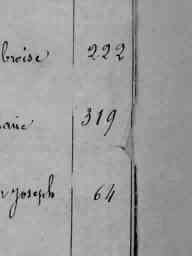 broise 222
marie 319
r Joseph 64